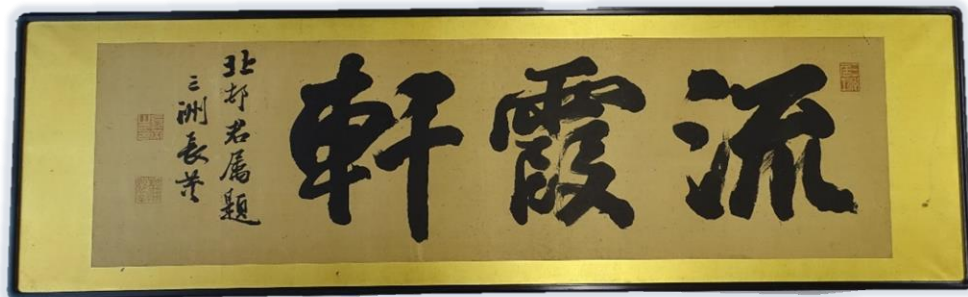 流霞軒
北邨君属題
三洲長芠